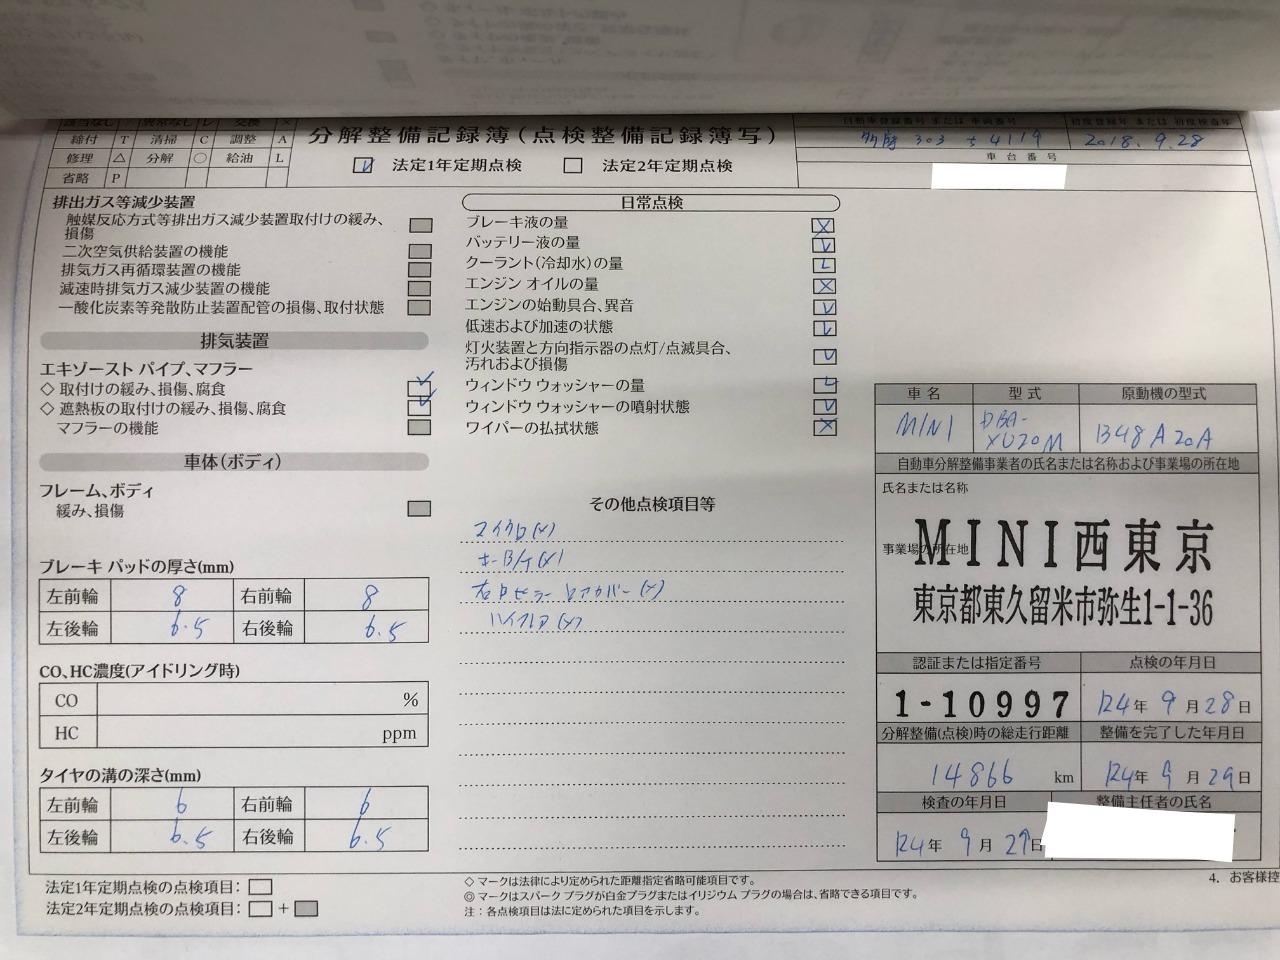 締付 T 清掃 C 調整 A
修理 △ 分解 ○ 給油 L
省略 P
分解整備記録簿(点検整備記録簿写)
法定1年定期点検 法定2年定期点検
自動車登録番号 または 車両番号 初度登録年 または 初度検査年
多摩 303 4119 2018.9.28
車台番号
排出ガス等減少装置
触媒反応方式等排出ガス減少装置取付けの緩み、
損傷
二次空気供給装置の機能
排気ガス再循環装置の機能
減速時排気ガス減少装置の機能
一酸化炭素等発散防止装置配管の損傷、取付状態
排気装置
エキゾースト パイプ、マフラー
◇ 取付けの緩み、損傷、腐食
◇ 遮熱板の取付けの緩み、損傷、腐食
マフラーの機能
車体(ボディ)
フレーム、ボディ
緩み、損傷
ブレーキ パッドの厚さ(mm)
左前輪 8 右前輪 8
左後輪 6.5 右後輪 6.5
CO、HC濃度(アイドリング時)
CO %
HC ppm
タイヤの溝の深さ(mm)
左前輪 6 右前輪 6
左後輪 6.5 右後輪 6.5
法定1年定期点検の点検項目:
法定2年定期点検の点検項目: +
日常点検
ブレーキ液の量
バッテリー液の量
クーラント(冷却水)の量
エンジン オイルの量
エンジンの始動具合、異音
低速および加速の状態
灯火装置と方向指示器の点灯/点滅具合、
汚れおよび損傷
ウィンドウ ウォッシャーの量
ウィンドウ ウォッシャーの噴射状態
ワイパーの払拭状態
その他点検項目等
マイクロ(×)
キーB/T(×)
◇ マークは法律により定められた距離指定省略可能項目です。
◎ マークはスパーク プラグが白金プラグまたはイリジウム プラグの場合は、省略できる項目です。
注:各点検項目は法に定められた項目を示します。
車名 型式 原動機の型式
MINI DBA-
XU20M B48A20A
自動車分解整備事業者の氏名または名称および事業場の所在地
氏名または名称
MINI西東京
事業場の所在地
東京都東久留米市弥生1-1-36
認証または指定番号 点検の年月日
1-10997 R4年 9月 28日
分解整備(点検)時の総走行距離 整備を完了した年月日
14866 km R4年 9月 29日
検査の年月日 整備主任者の氏名
R4年 9月 29日
4. お客様控